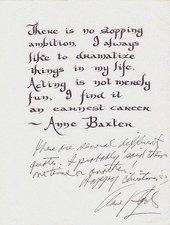 There is no stopping
ambition. I always
like to dramatize
things in my life.
Acting is not merely
fun, I find it
an earnest career
~ Anne Baxter
These are several different
quotes & probably said them
one time or another
Happy
Anne